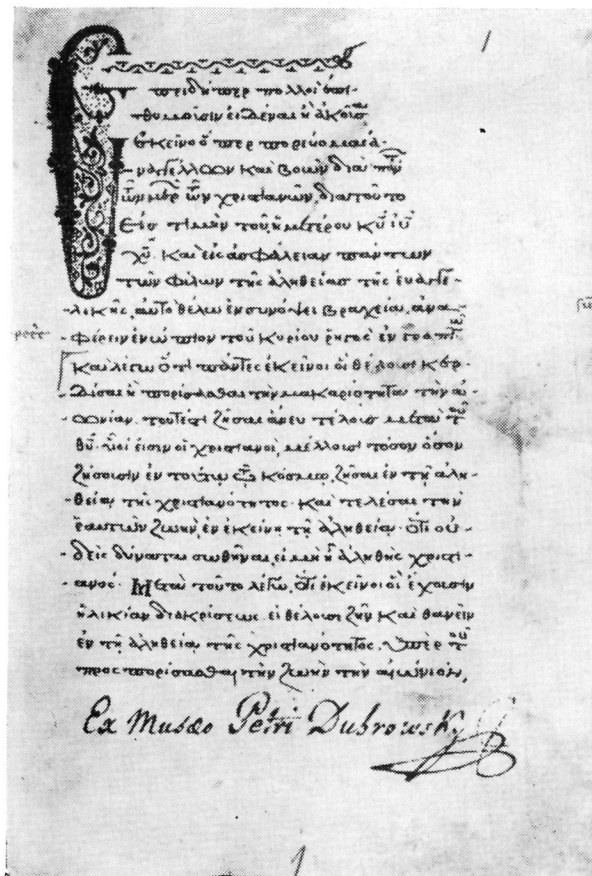 Ἐπειδήπερ πολλοὶ ἐπι-
θυμοῦσιν εἰδέναι ἢ ἀκοῦσαι
ἐκεῖνο ὅπερ πορεύομαι ἀ-
ναγγέλλων καὶ βοῶν διὰ
μερ ῶν χριστιανῶν, διὰ τοῦτο
Εἰς τιμὴν τοῦ ἡμετέρου κυ ιυ
χυ. καὶ εἰς ἀσφάλειαν πάντων
τῶν φίλων τῆς ἀληθείας τῆς εὐαγγε-
λικῆς, αὐτὸ θέλω ἐν συνόψει βραχείᾳ, ἀνα-
φέρειν ἐνώπιον τοῦ κυρίου ῥηγὸς ἐν
Καὶ λέγω ὅτι πάντες ἐκεῖνοι οἱ θέλουσι κερ-
δῖσαι ἢ πορίσασθαι τὴν μακαριότητα τὴν αἰ-
ωνίαν. τουτέστι ζῆσαι ἄνευ τέλους μετὰ τοῦ
θυ. εἰσιν οἱ χριστιανοὶ, μέλλουσι τόσον ὅσον
ζήσουσιν ἐν τούτῳ τῷ κόσμῳ, ζῆσαι ἐν τῇ ἀλη-
θείᾳ τῆς χριστιανότητος. καὶ τελέσαι τὴν
ἑαυτῶν ζωὴν, ἐν ἐκείνῃ τῇ ἀληθείᾳ. ὅτι οὐ-
δεὶς δύναται σωθῆναι, εἰ μὴ ἢ ἀληθὴς χριστι-
ανός. Μετὰ τοῦτο λέγω, ὅτι ἐκεῖνοι οἱ ἔχουσιν
ἡλικίαν διακρίσεως. εἰ θέλουσι ζῆν καὶ θανεῖν
ἐν τῇ ἀληθείᾳ τῆς χριστιανότητος. ὑπὲρ τοῦ
πρὸς πορίσασθαι τὴν ζωὴν τὴν αἰώνιον,
Ex Musæo Petri Dubrowsky